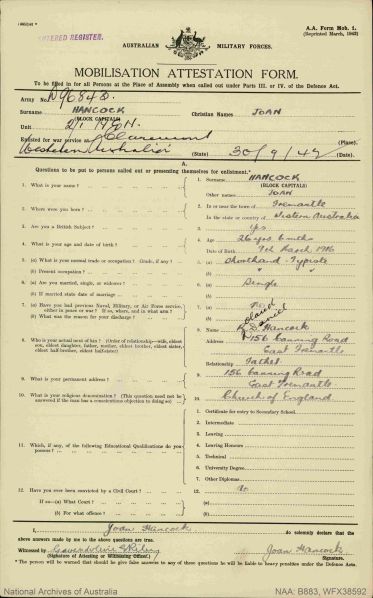 ENTERED REGISTER.
A.A. Form Mob. 1.
(Reprinted March, 1942)
AUSTRALIAN MILITARY FORCES.
MOBILISATION ATTESTATION FORM.
To be filled in for all Persons at the Place of Assembly when called out under Parts III. or IV. of the Defence Act.
Army No.
Surname HANCOCK Christian Names JOAN
(BLOCK CAPITALS)
Unit 2/1
Enlisted for war service at Claremont (Place).
Western Australia (State) 30/9/42 (Date)
A.
Questions to be put to persons called out or presenting themselves for enlistment.*
1. What is your name? 1. Surname HANCOCK
(BLOCK CAPITALS)
Other names JOAN
2. Where were you born? 2. In or near the town of Fremantle
In the state or country of Western Australia
3. Are you a British Subject? 3. Yes
4. What is your age and date of birth? 4. Age 26 yrs 6 mths
Date of Birth 7th March 1916
5. (a) What is your normal trade or occupation? Grade, if any 5. (a) Shorthand-Typiste
(b) Present occupation (b) " "
6. (a) Are you married, single, or widower? 6. (a) Single
(b) If married state date of marriage (b)
7. (a) Have you had previous Naval, Military, or Air Force service, either in peace or war? If so, where, and in what arm? 7. (a) No
(b) What was the reason for your discharge? (b)
8. Who is your actual next of kin? (Order of relationship—wife, eldest son, eldest daughter, father, mother, eldest brother, eldest sister, eldest half-brother, eldest half-sister) 8. Name Hancock
Address 156 Canning Road
East Fremantle
Relationship Father
9. What is your permanent address? 9. 156 Canning Road
East Fremantle
10. What is your religious denomination? (This question need not be answered if the man has a conscientious objection to doing so) 10. Church of England
11. Which, if any, of the following Educational Qualifications do you possess?
1. Certificate for entry to Secondary School
2. Intermediate
3. Leaving
4. Leaving Honours
5. Technical
6. University Degree
7. Other Diplomas
12. Have you ever been convicted by a Civil Court? 12. No
If so—(a) What Court? (a)
(b) For what offence? (b)
I, Joan Hancock do solemnly declare that the
above answers made by me to the above questions are true.
Witnessed by Joan Hancock
(Signature of Attesting or Witnessing Officer.) Signature.
* The person will be warned that should he give false answers to any of these questions he will be liable to heavy penalties under the Defence Act.
National Archives of Australia NAA: B883, WFX38592